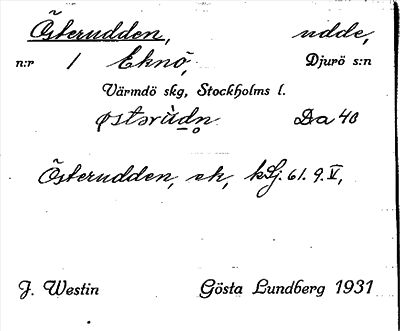 Österudden, udde,
n:r 1 Eknö, Djurö s:n
Värmdö skg, Stockholms l.
østərùdn̥ Da 40
Österudden, ek, 61. 9. V,
J. Westin Gösta Lundberg 1931